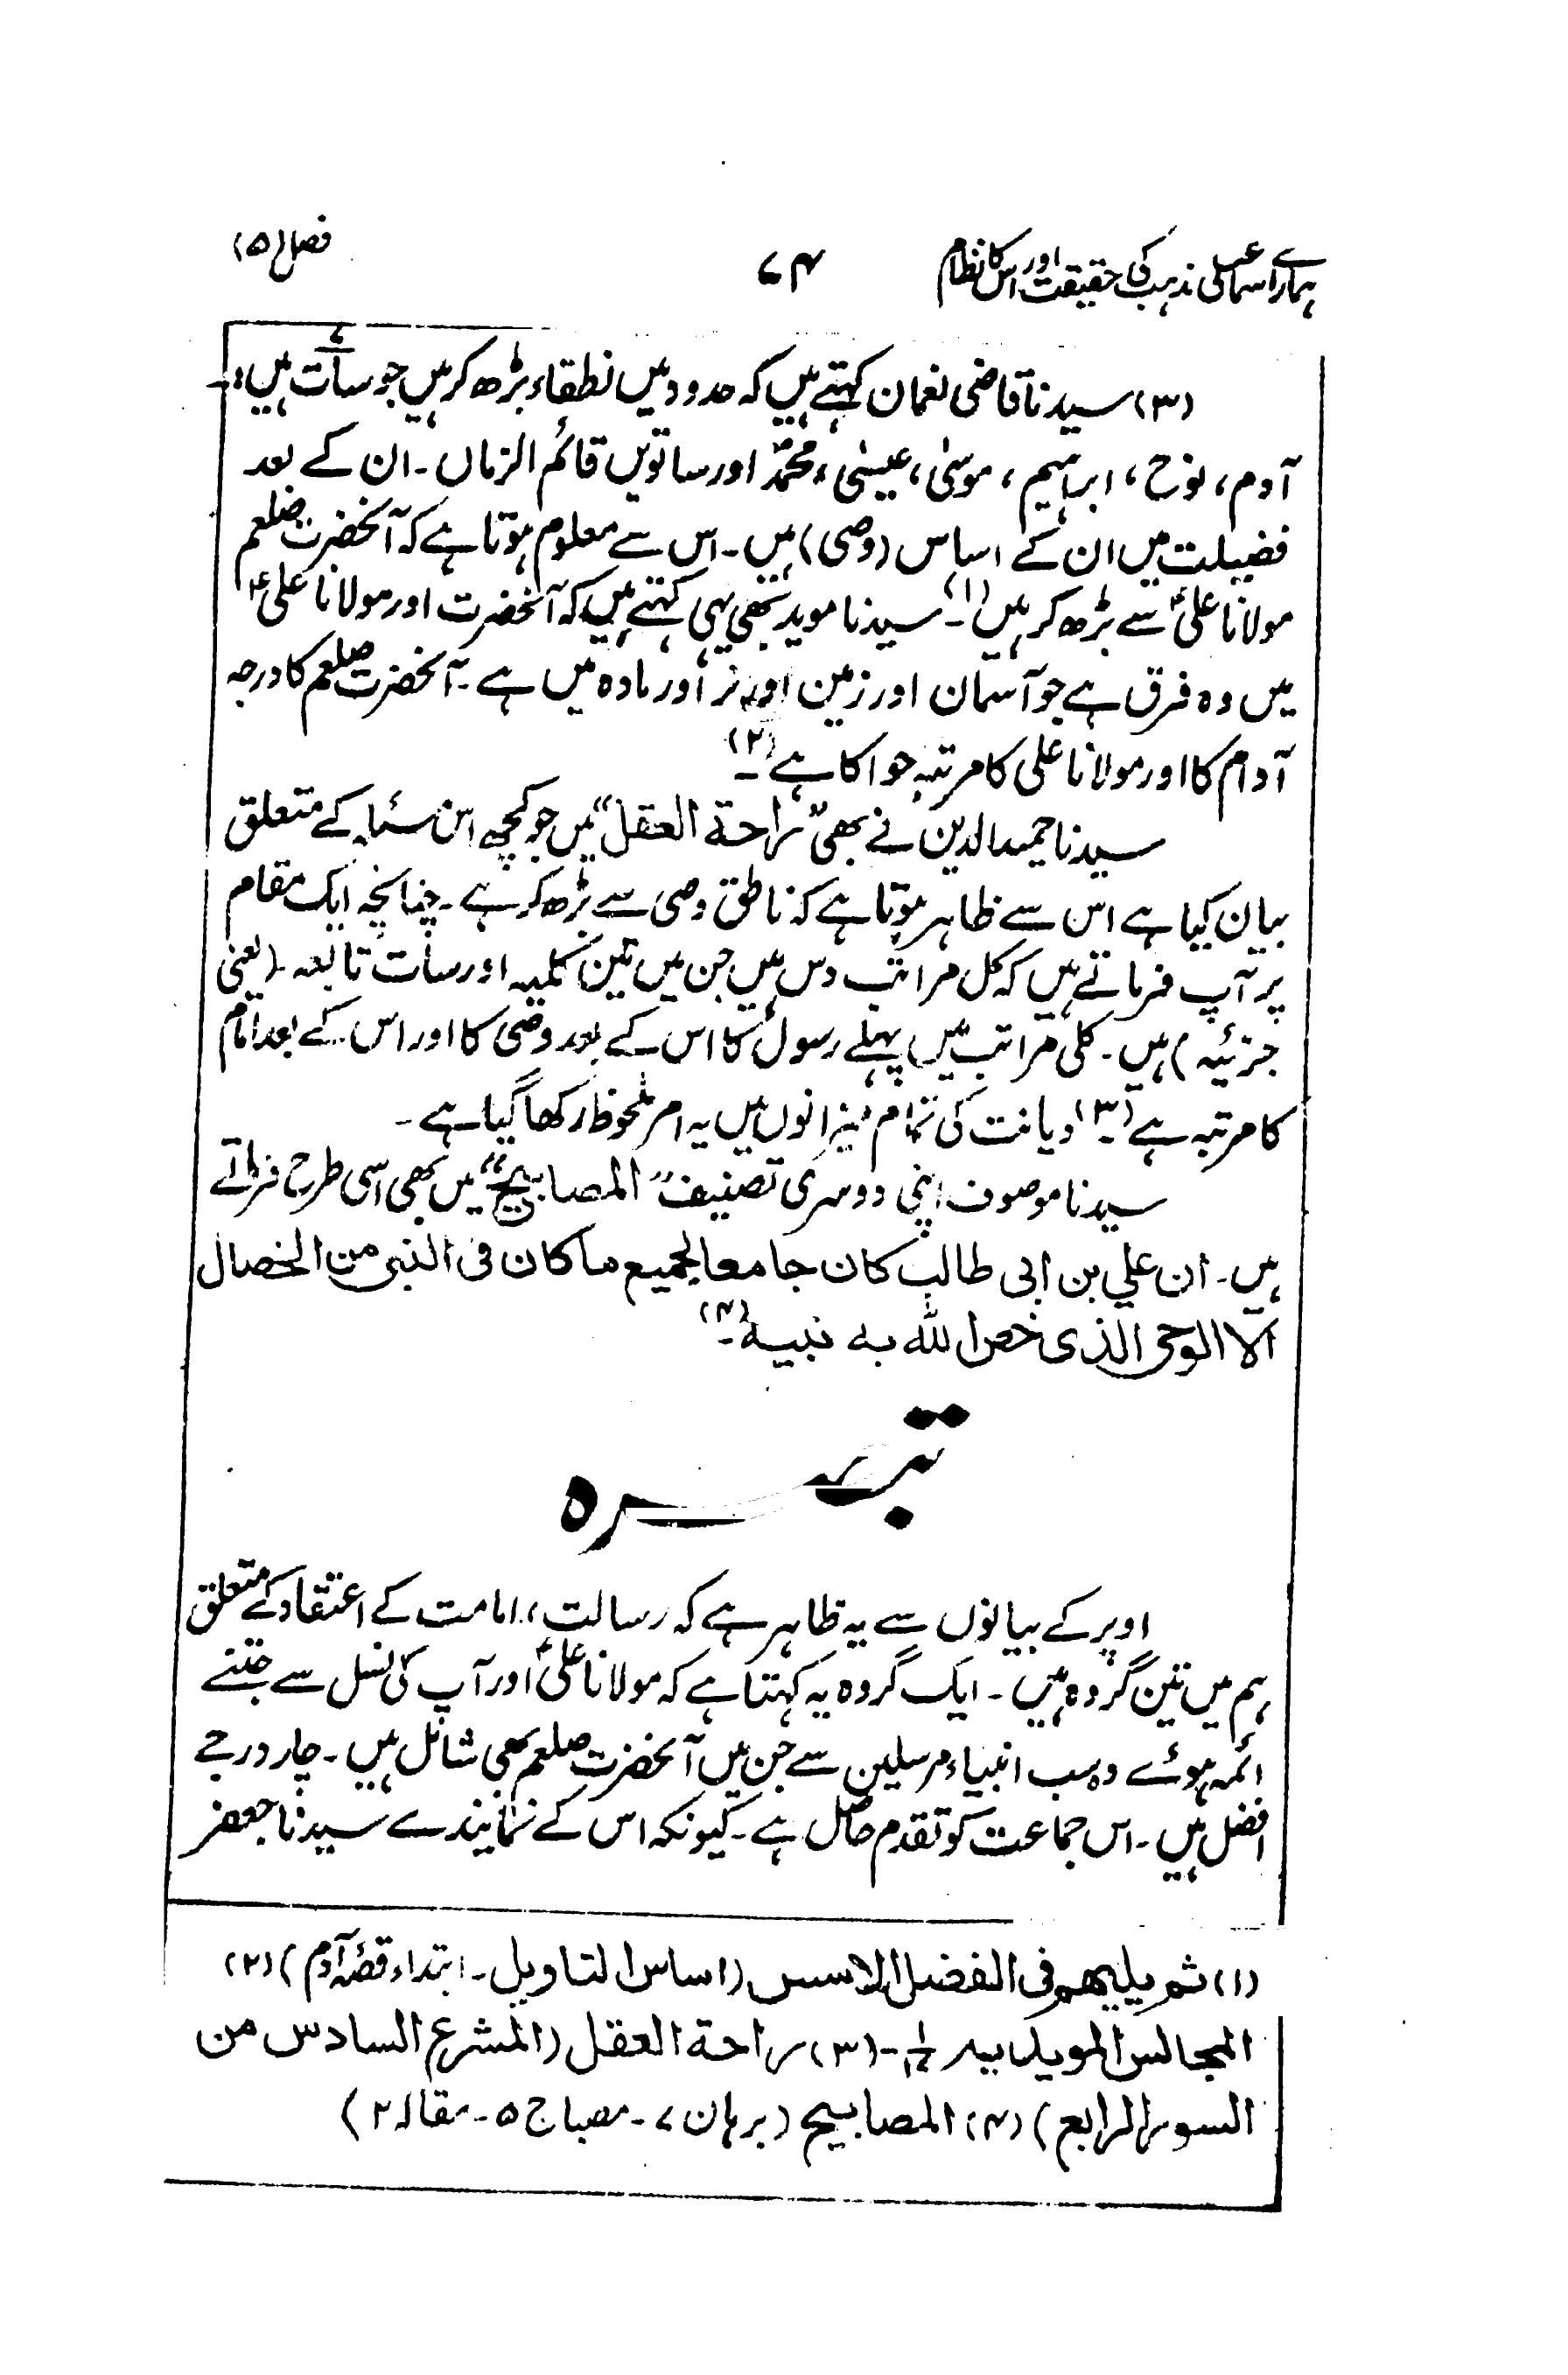 ہمارے اسماعیلی مذہب کی حقیقت اور اس کا نظام ۷۴ فصل (۵)
(۳) سیدنا قاضی نعمان کہتے ہیں کہ حدود میں نطقاء بڑھ کر ہیں جو سات ہیں:۔
آدم، نوح، ابراہیم، موسیٰ، عیسیٰ، محمدؐ اور ساتویں قائم الزماں۔ ان کے بعد
فضیلت میں ان کے اساس (وصی) ہیں۔ اس سے معلوم ہوتا ہے کہ آنحضرت صلعم
مولانا علیؑ سے بڑھ کر ہیں (۱)۔ سیدنا موید بھی یہی کہتے ہیں کہ آنحضرت اور مولانا علیؑ
میں وہ فرق ہے جو آسمان اور زمین اور نر اور مادہ میں ہے۔ آنحضرت صلعم کا درجہ
آدم کا اور مولانا علی کا مرتبہ حوا کا ہے (۲)۔
سیدنا حمیدالدین نے بھی "راحة العقل" میں جو کچھ اس مسئلہ کے متعلق
بیان کیا ہے اس سے ظاہر ہوتا ہے کہ ناطق وصی سے بڑھ کر ہے۔ چنانچہ ایک مقام
پر آپ فرماتے ہیں کہ کل مراتب دس ہیں جن میں تین کلیہ اور سات تابعہ (یعنی
جزئیہ) ہیں۔ کلی مراتب میں پہلے رسول کا اس کے بعد وصی کا اور اس کے بعد امام
کا مرتبہ ہے (۳)۔ دیانت کی تمام میزانوں میں یہ امر ملحوظ رکھا گیا ہے۔
سیدنا موصوف اپنی دوسری تصنیف "المصابیح" میں بھی اسی طرح فرماتے
ہیں۔ ان علي بن ابی طالب کان جامعا لجمیع ما کان فی النبی من الخصال
الا الوحی الذی خص الله به نبیه (۴)۔
تبصرہ
اوپر کے بیانوں سے یہ ظاہر ہے کہ رسالت، امامت کے اعتقاد کے متعلق
ہم میں تین گروہ ہیں۔ ایک گروہ یہ کہتا ہے کہ مولانا علیؑ اور آپ کی نسل سے جتنے
ائمہ ہوئے وہ سب انبیاء مرسلین سے جن میں آنحضرت صلعم بھی شامل ہیں۔ چار درجے
افضل ہیں۔ اس جماعت کو تقدم حاصل ہے۔ کیونکہ اس کے نمایندے سیدنا جعفر
(۱) ثم یلیهم فی الفضل الاسس (اساس التاویل۔ ابتداء قصۂ آدم) (۲)
المجالس المویدیه (۳) راحة العقل (المشرع السادس من
السور الرابع) (۴) المصابیح (برہان ۷۔ مصباح ۵۔ مقالہ ۲)